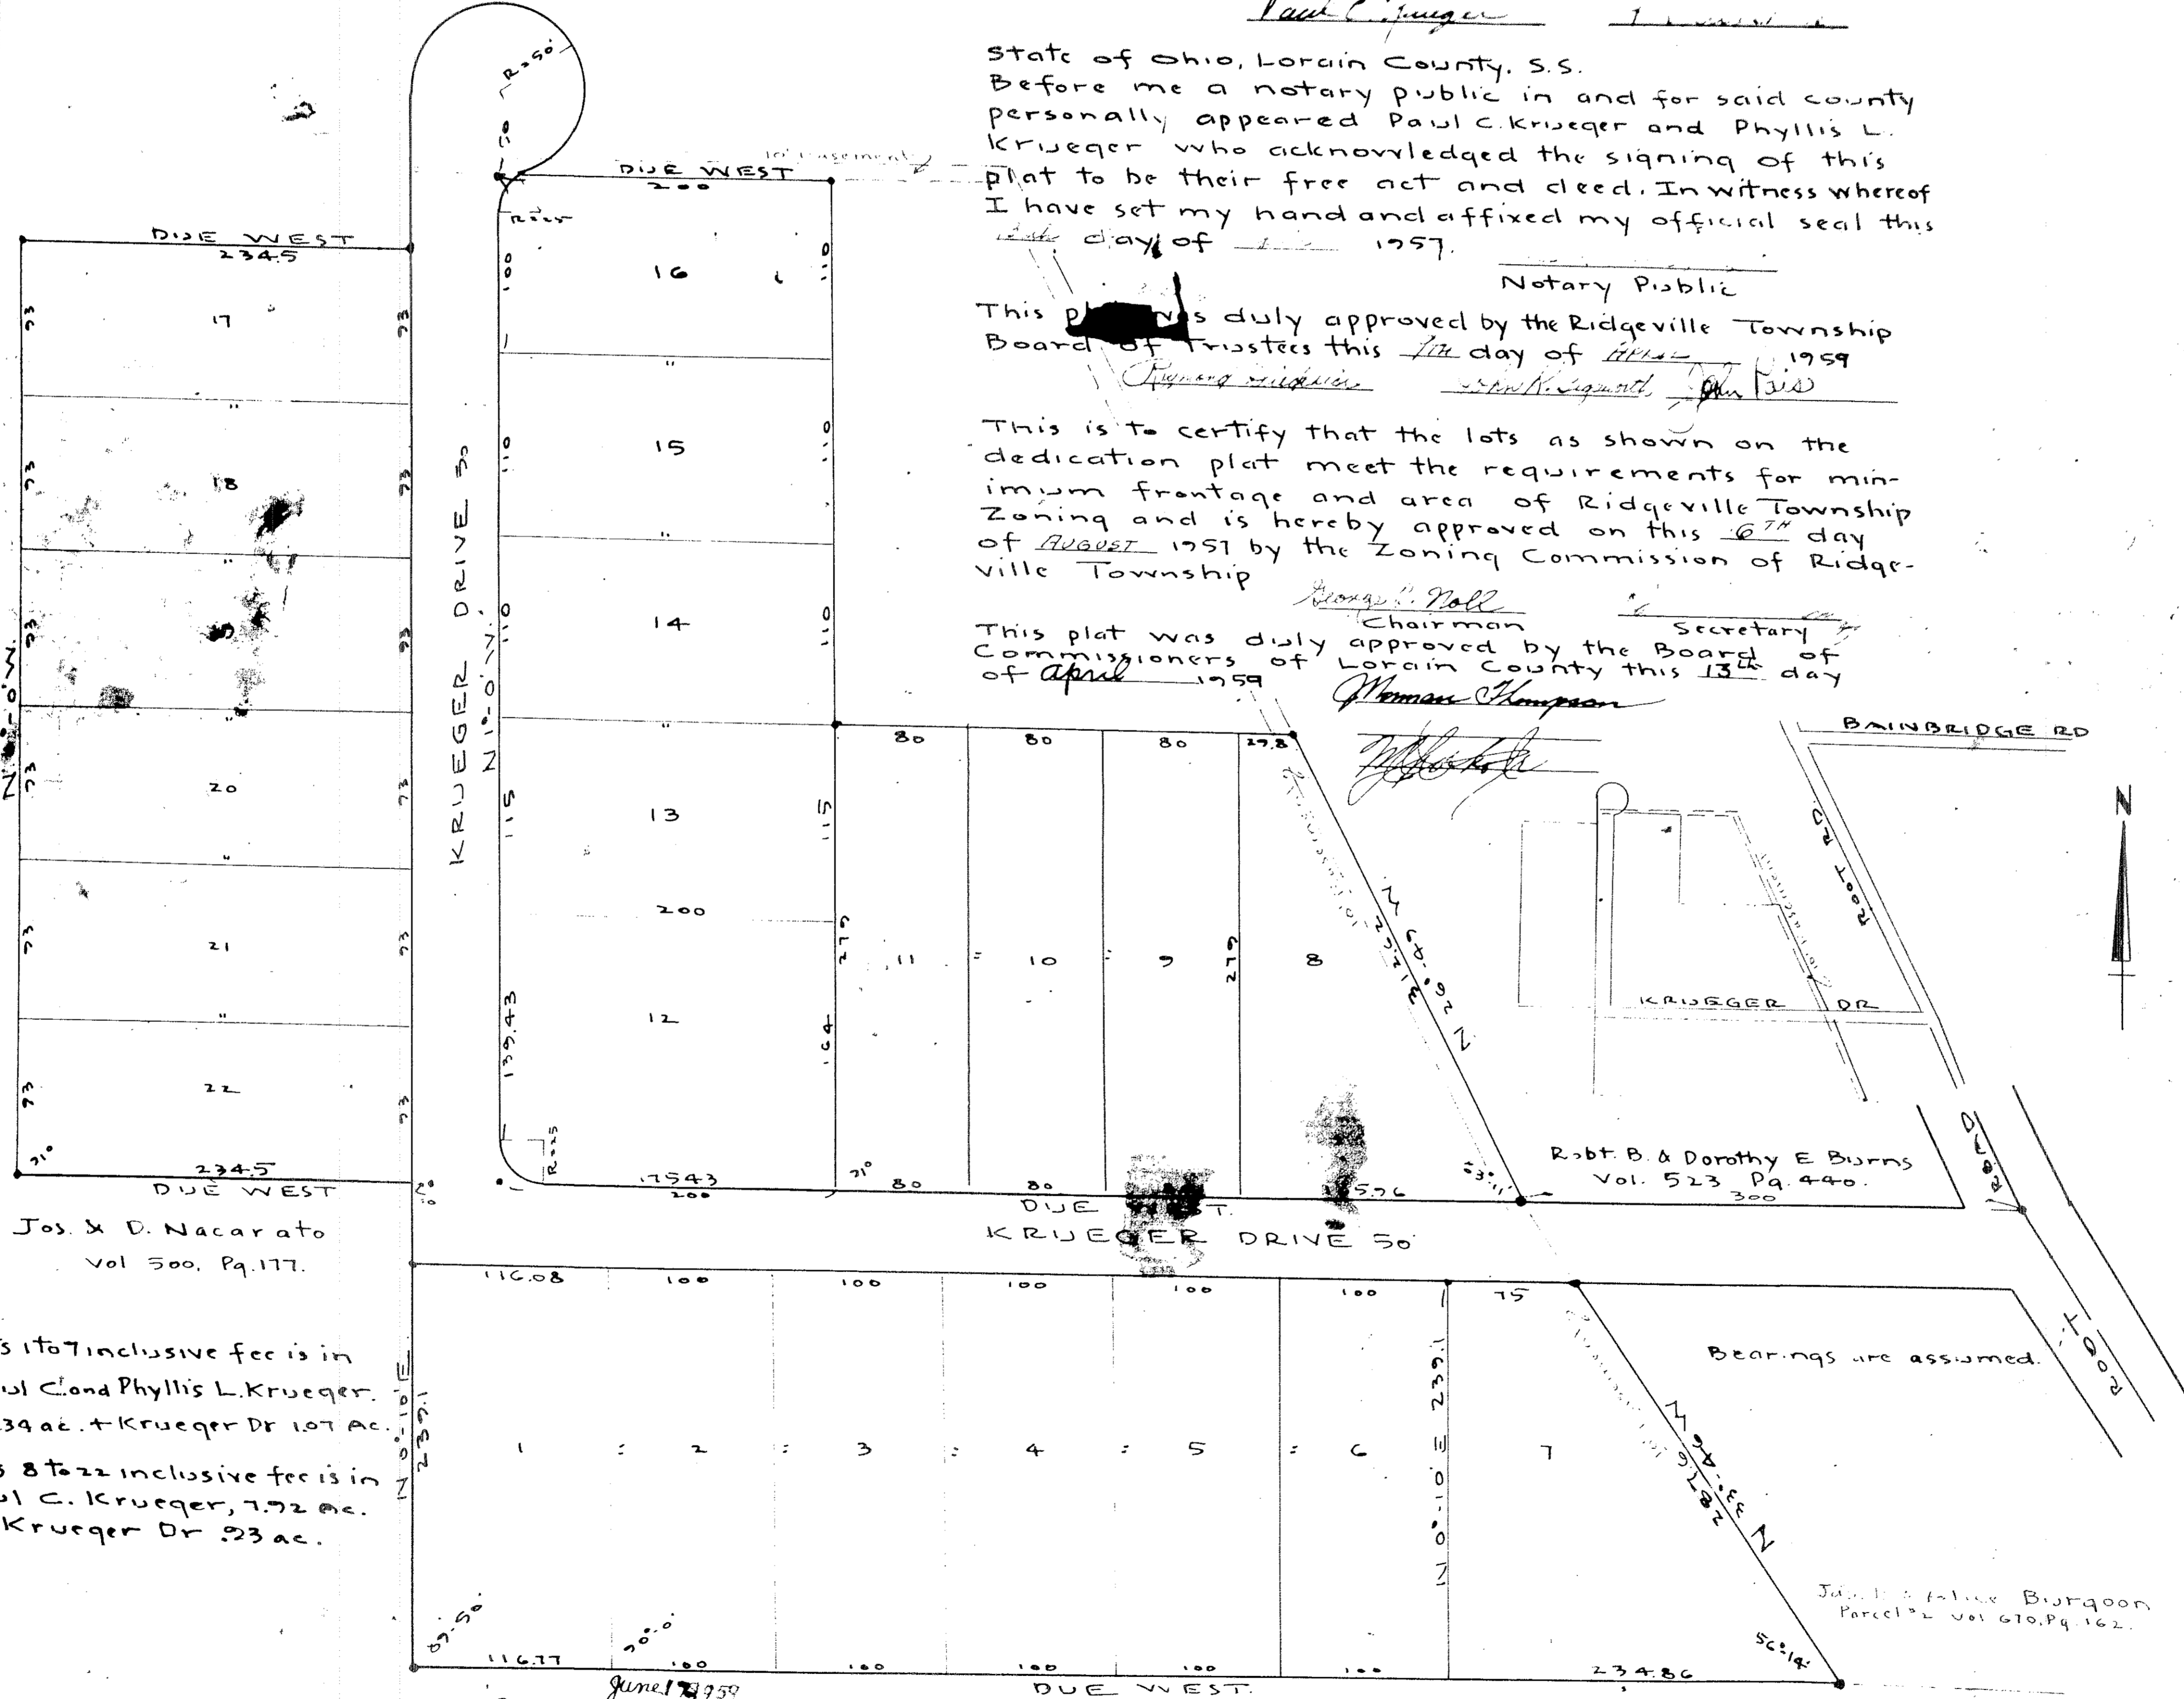 Paul C. Krueger
State of Ohio, Lorain County. S.S.
Before me a notary public in and for said county
personally appeared Paul C. Krueger and Phyllis L.
Krueger who acknowledged the signing of this
plat to be their free act and deed. In witness whereof
I have set my hand and affixed my official seal this
day of 1957.
Notary Public
This was duly approved by the Ridgeville Township
Board of Trustees this 7TH day of APRIL 1959
This is to certify that the lots as shown on the
dedication plat meet the requirements for min-
imum frontage and area of Ridgeville Township
Zoning and is hereby approved on this 6TH day
of AUGUST 1957 by the Zoning Commission of Ridge-
ville Township
George P. Noll
Chairman
Secretary
This plat was duly approved by the Board of
Commissioners of Lorain County this 13th day
of April 1959
Norman Thompson
R=50'
50
10' Easement
DUE WEST
200
R=25
100
16
110
"
110
15
110
"
110
14
110
"
115
13
115
200
139.43
12
164
R=25
17543
200
91°
KRUEGER DRIVE 50
N 1°-0' W.
DUE WEST
234.5
93
17
93
"
93
18
93
"
93
93
"
93
20
93
"
93
21
93
"
93
22
93
91°
234.5
DUE WEST
N 1°-0' W.
80
80
80
29.8
279
11
=
10
=
9
279
8
10' Easement
312.22
N 26°-49' W
63°-11'
80
80
DUE WEST.
KRUEGER DRIVE 50'
BAINBRIDGE RD
ROOT RD.
N
KRUEGER DR
Robt. B. & Dorothy E Burns
Vol. 523 Pg. 440.
300
ROAD
ROOT
Jos. & D. Nacarato
Vol 500, Pg. 177.
s 1 to 7 inclusive fee is in
ul C. and Phyllis L. Krueger.
34 ac. + Krueger Dr 1.07 Ac.
s 8 to 22 inclusive fee is in
ul C. Krueger, 7.92 ac.
Krueger Dr .93 ac.
116.08
100
100
100
100
100
75
Bearings are assumed.
N 0°-10' E
239.1
1
=
2
=
3
=
4
=
5
=
6
N 0°-10' E 239.1
7
10' Easement
287.6
N 33°-46' W
Burgoon
Parcel #2 Vol 670, Pg. 162.
89°-50'
90°-0'
56°-14'
116.77
100
100
100
100
100
234.86
June 17 1959
DUE WEST.